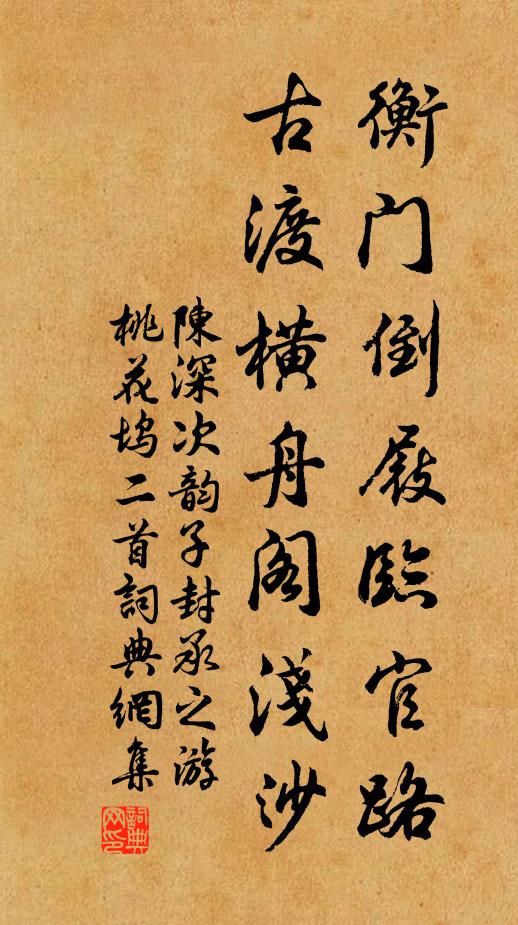 衡门倒屐臨官路
古渡横舟阁淺沙
陳深次韵子封承之游
桃花坞二首詞典網集
詞典
网印